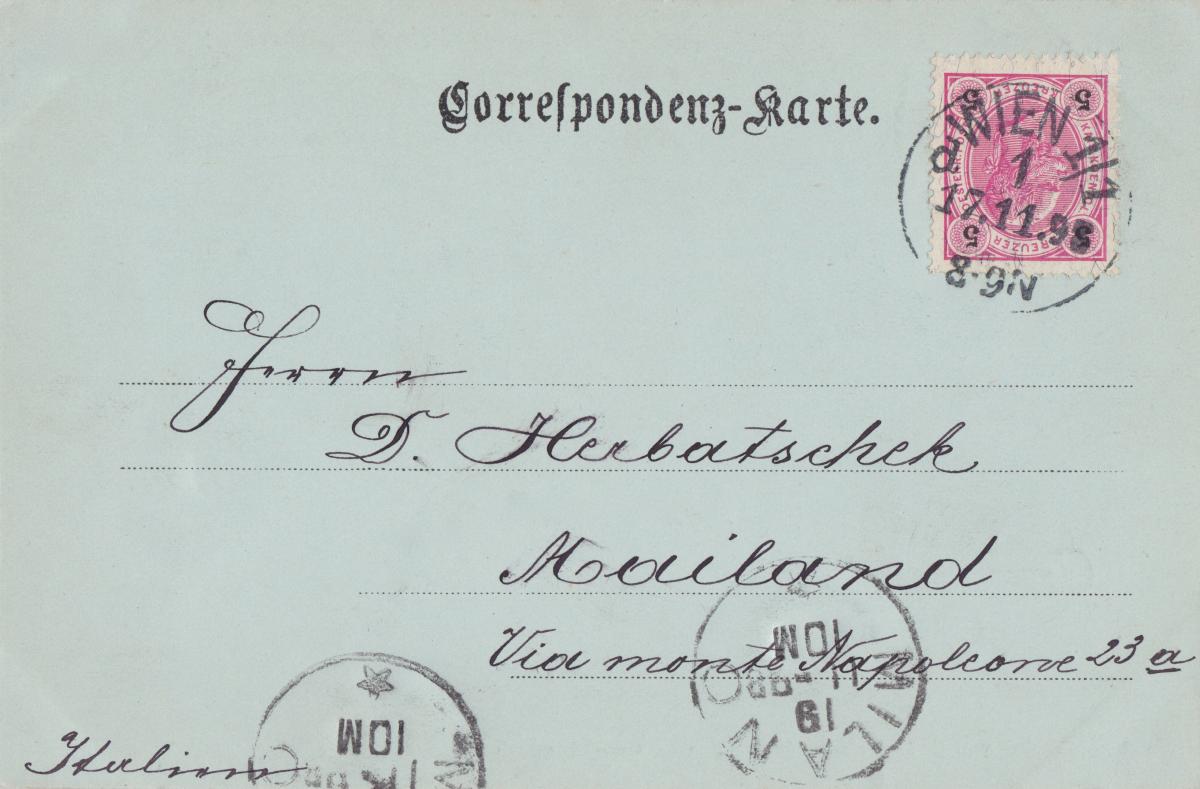 Correspondenz-Karte.
5 KREUZER 5
5 KREUZER 5
WIEN 1/1
1
17.11.98
8-9N
Herrn
D. Herbatschek
Mailand
Via monte Napoleone 23 a
Italien
MILANO
19
11-98
10M
10M